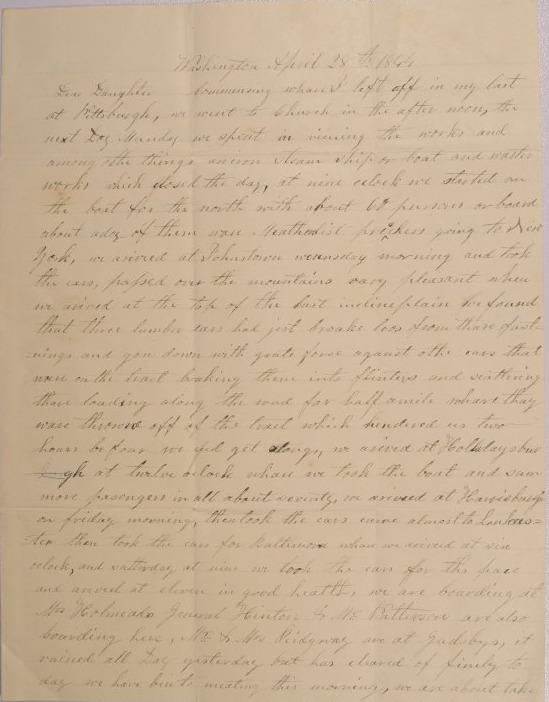 Washington April 28th 1844
Dear Daughter Commencing whare I left off in my last
at Pittsburgh, we went to Church in the after noon, the
next Day Munday we spent in viewing the works and
among othe things an iron Steam Ship or boat and watter
works which closed the day, at nine oclock we started on
the boat for the north with about 60 persons on board
about a doz of them ware Meathodist prechers going to New
York, we arived at Johnstown wensday morning and took
the cars, passed over the mountains vary pleasant when
we arived at the top of the last inclineplain we found
that three lumber cars had just broake loos from thare fast-
-nings and gon down with grate forse against othe cars that
ware on the tract braking them into flinters and scattering
thare loading along the road for half a mile whare thay
ware throwne off of the tract which hendered us two
hours be four we cud get along, we arived at Hollidaysbur
gh at twelve oclock whare we took the boat and sum
more pasengers in all about seventy, we arived at Harrisburgh
on friday morning, then took the cars came almost to Lankcas=
=ter then took the cars for Baltimore whare we arived at six
oclock, and satturday at nine we took the cars for this place
and arived at eleven in good health, we are boarding at
Mrs Holmeads General Hinton & Mr Patterson are also
boarding here, Mr & Mrs Ridgway are at Gadsbys, it
rained all Day yesterday but has cleared of finely to
day we have bin to meating this morning, we are about take